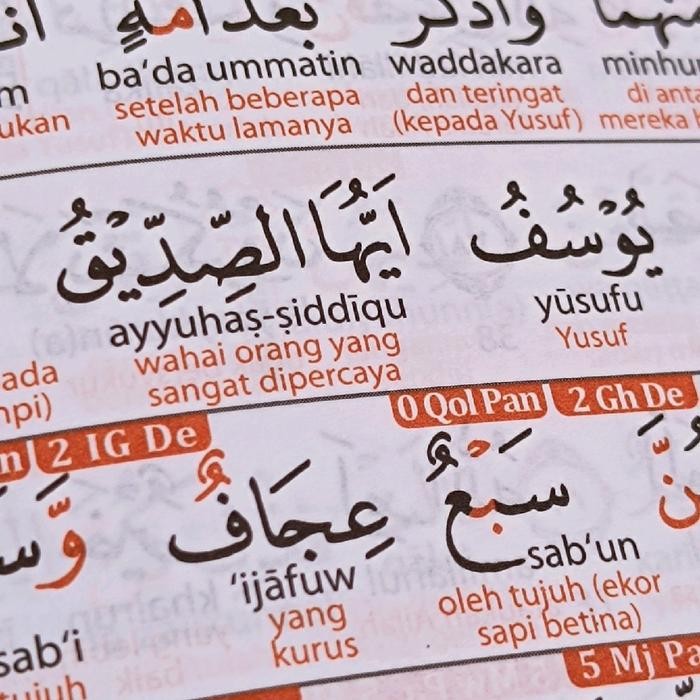 بَعْدَ اُمَّةٍ وَادَّكَرَ
ba‘da ummatin waddakara
setelah beberapa dan teringat di
ukan waktu lamanya (kepada Yusuf) mereka
يُوْسُفُ اَيُّهَا الصِّدِّيْقُ
ayyuhaṣ-ṣiddīqu yūsufu
wahai orang yang Yusuf
sangat dipercaya
2 IG De 0 Qol Pan 2 Gh De
سَبْعٌ عِجَافٌ وَّ
‘ijāfuw sab‘un
yang oleh tujuh (ekor
sab‘i kurus sapi betina)
tujuh 5 Mj Pa